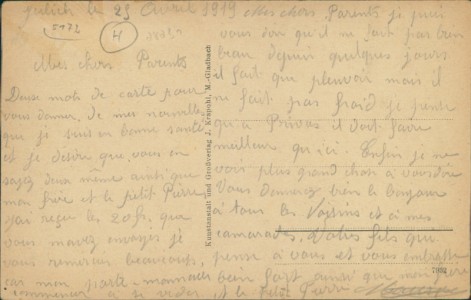 Julich le 23 Avril 1919
5172
H
Mes chers Parents
Deux mots de carte pour
vous donner de mes nouvelles
que je suis en bonne santé
et je désire que vous en
soyez de même ainsi que
mon frère et le petit Pierre
j'ai reçu les 20 fr. que
vous m'avez envoyés je
vous remercie beaucoup,
car mon porte-monnaie
commence à se vider
Mes chers Parents je puis
vous dire qu'il ne fait pas bien
beau depuis quelques jours
il fait que pleuvoir mais il
ne fait pas froid je pense
qu'à Privas il doit faire
meilleur qu'ici. Enfin je ne
vois plus grand chose à vous dire
Vous donnerez bien le bonjour
à tous les Voisins et à mes
camarades. Votre fils que
pense à vous et vous embrasse
bien fort ainsi que mon frère
et le petit Pierre
Kunstanstalt und Großverlag J. Krapohl, M.-Gladbach